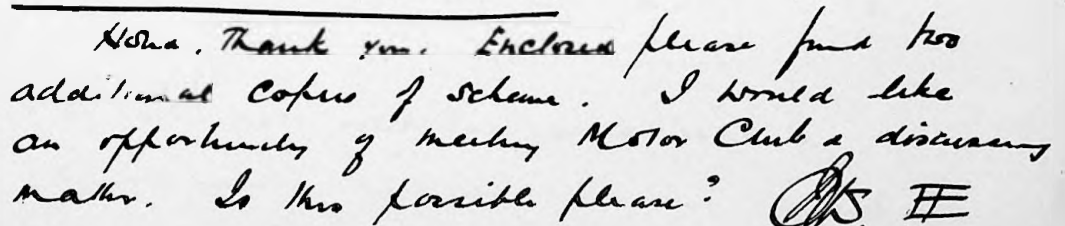 Noted. Thank you. Enclosed please find two
additional copies of scheme. I would like
an opportunity of meeting Motor Club & discussing
matter. Is this possible please?